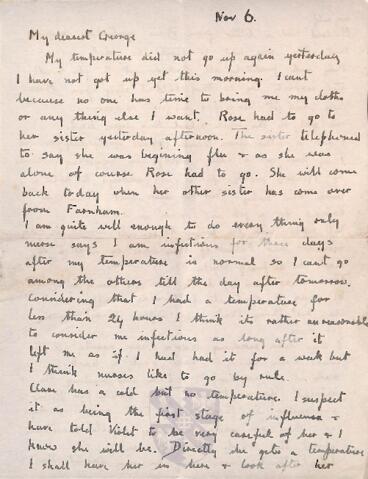 Nov 6.
My dearest George
My temperature did not go up again yesterday
I have not got up yet this morning. I cant
because no one has time to bring me my cloths
or any thing else I want. Rose had to go to
her sister yesterday afternoon. The sister telephoned
to say she was begining flu & as she was
alone of course Rose had to go. She will come
back today when her other sister has come over
from Farnham.
I am quite well enough to do every thing only
nurse says I am infectious for three days
after my temperature is normal so I cant go
among the others till the day after tomorrow.
Considering that I had a temperature for
less than 24 hours I think its rather unreasonable
to consider me infectious as long after it
left me as if I had had it for a week but
I think nurses like to go by rule.
Clare has a cold but no temperature. I suspect
it as being the first stage of influenza &
have told Violet to be very careful of her & I
know she will be. Directly she gets a temperature
I shall have her in here & look after her